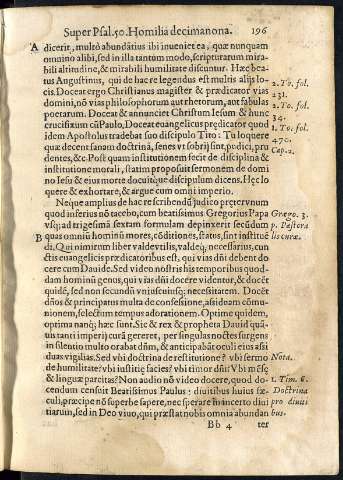 Super Psal.50. Homilia decimanona. 196
A dicerit, multò abundātius ibi inueniet ea, quæ nunquam
omnino alibi, sed in illa tantùm modo, scripturarum mira-
bili altitudine, & mirabili humilitate discuntur. Hæc bea-
tus Augustinus, qui de hac re legendus est multis alijs lo-
cis. Doceat ergo Christianus magister & prædicator vias 2. To. fol.
domini, nō vias philosophorum aut rhetorum, aut fabulas 231.
poetarum. Doceat & annunciet Christum Iesum & hunc 2. To. fol.
crucifixum cū Paulo, Doceat euangelicus prædicator quod 34.
idem Apostolus tradebat suo discipulo Tito: Tu loquere 1. To. fol.
quæ decent sanam doctrinā, senes vt sobrij sint, pudici, pru 470.
dentes, &c. Post quam institutionem fecit de disciplina & Cap. 2.
institutione morali, statim proposuit sermonem de domi
no Iesu & eius morte docuitque discipulum dicens. Hęc lo
quere & exhortare, & argue cum omni imperio.
Neque amplius de hac re scribendū judico pręter vnum
quod inferius nō tacebo, cum beatissimus Gregorius Papa Grego. 3.
vsq; ad trigesimā sextam formulam depinxerit secūdum p. Pastora
B quas omniū hominū mores, cōditiones, status, sint instituē lis curæ.
di. Qui nimirum liber valde vtilis, valdeq; necessarius, cun
ctis euangelicis prædicatoribus est, qui vias dñi debent do
cere cum Dauide. Sed video nostris his temporibus quod-
dam hominū genus, qui vias dñi docere videntur, & docēt
quidē, sed non secundū vniuscuiusq; necessitatem. Docēt
dños & principatus multa de confessione, assideam cōmu-
nionem, selectum tempus adorationem. Optime quidem,
optima nanq; hæc sunt. Sic & rex & propheta Dauid quā-
uis tanti imperij curā gereret, per singulas noctes surgens
in silentio multo orabat dñm, & anticipabāt oculi eius assi
duas vigilias. Sed vbi doctrina de restitutione? vbi sermo Nota.
de humilitate? vbi iustitię facies? vbi timor dñi? Vbi mēsę
& linguæ parcitas? Non audio nō video docere, quod do- 1. Tim. 6.
cendum censuit Beatissimus Paulus: diuitibus huius sæ- Doctrina
culi, præcipe nō superbe sapere, nec sperare in incerto diui pro diuiti
tiarum, sed in Deo viuo, qui præstat nobis omnia abundan bus.
Bb 4 ter